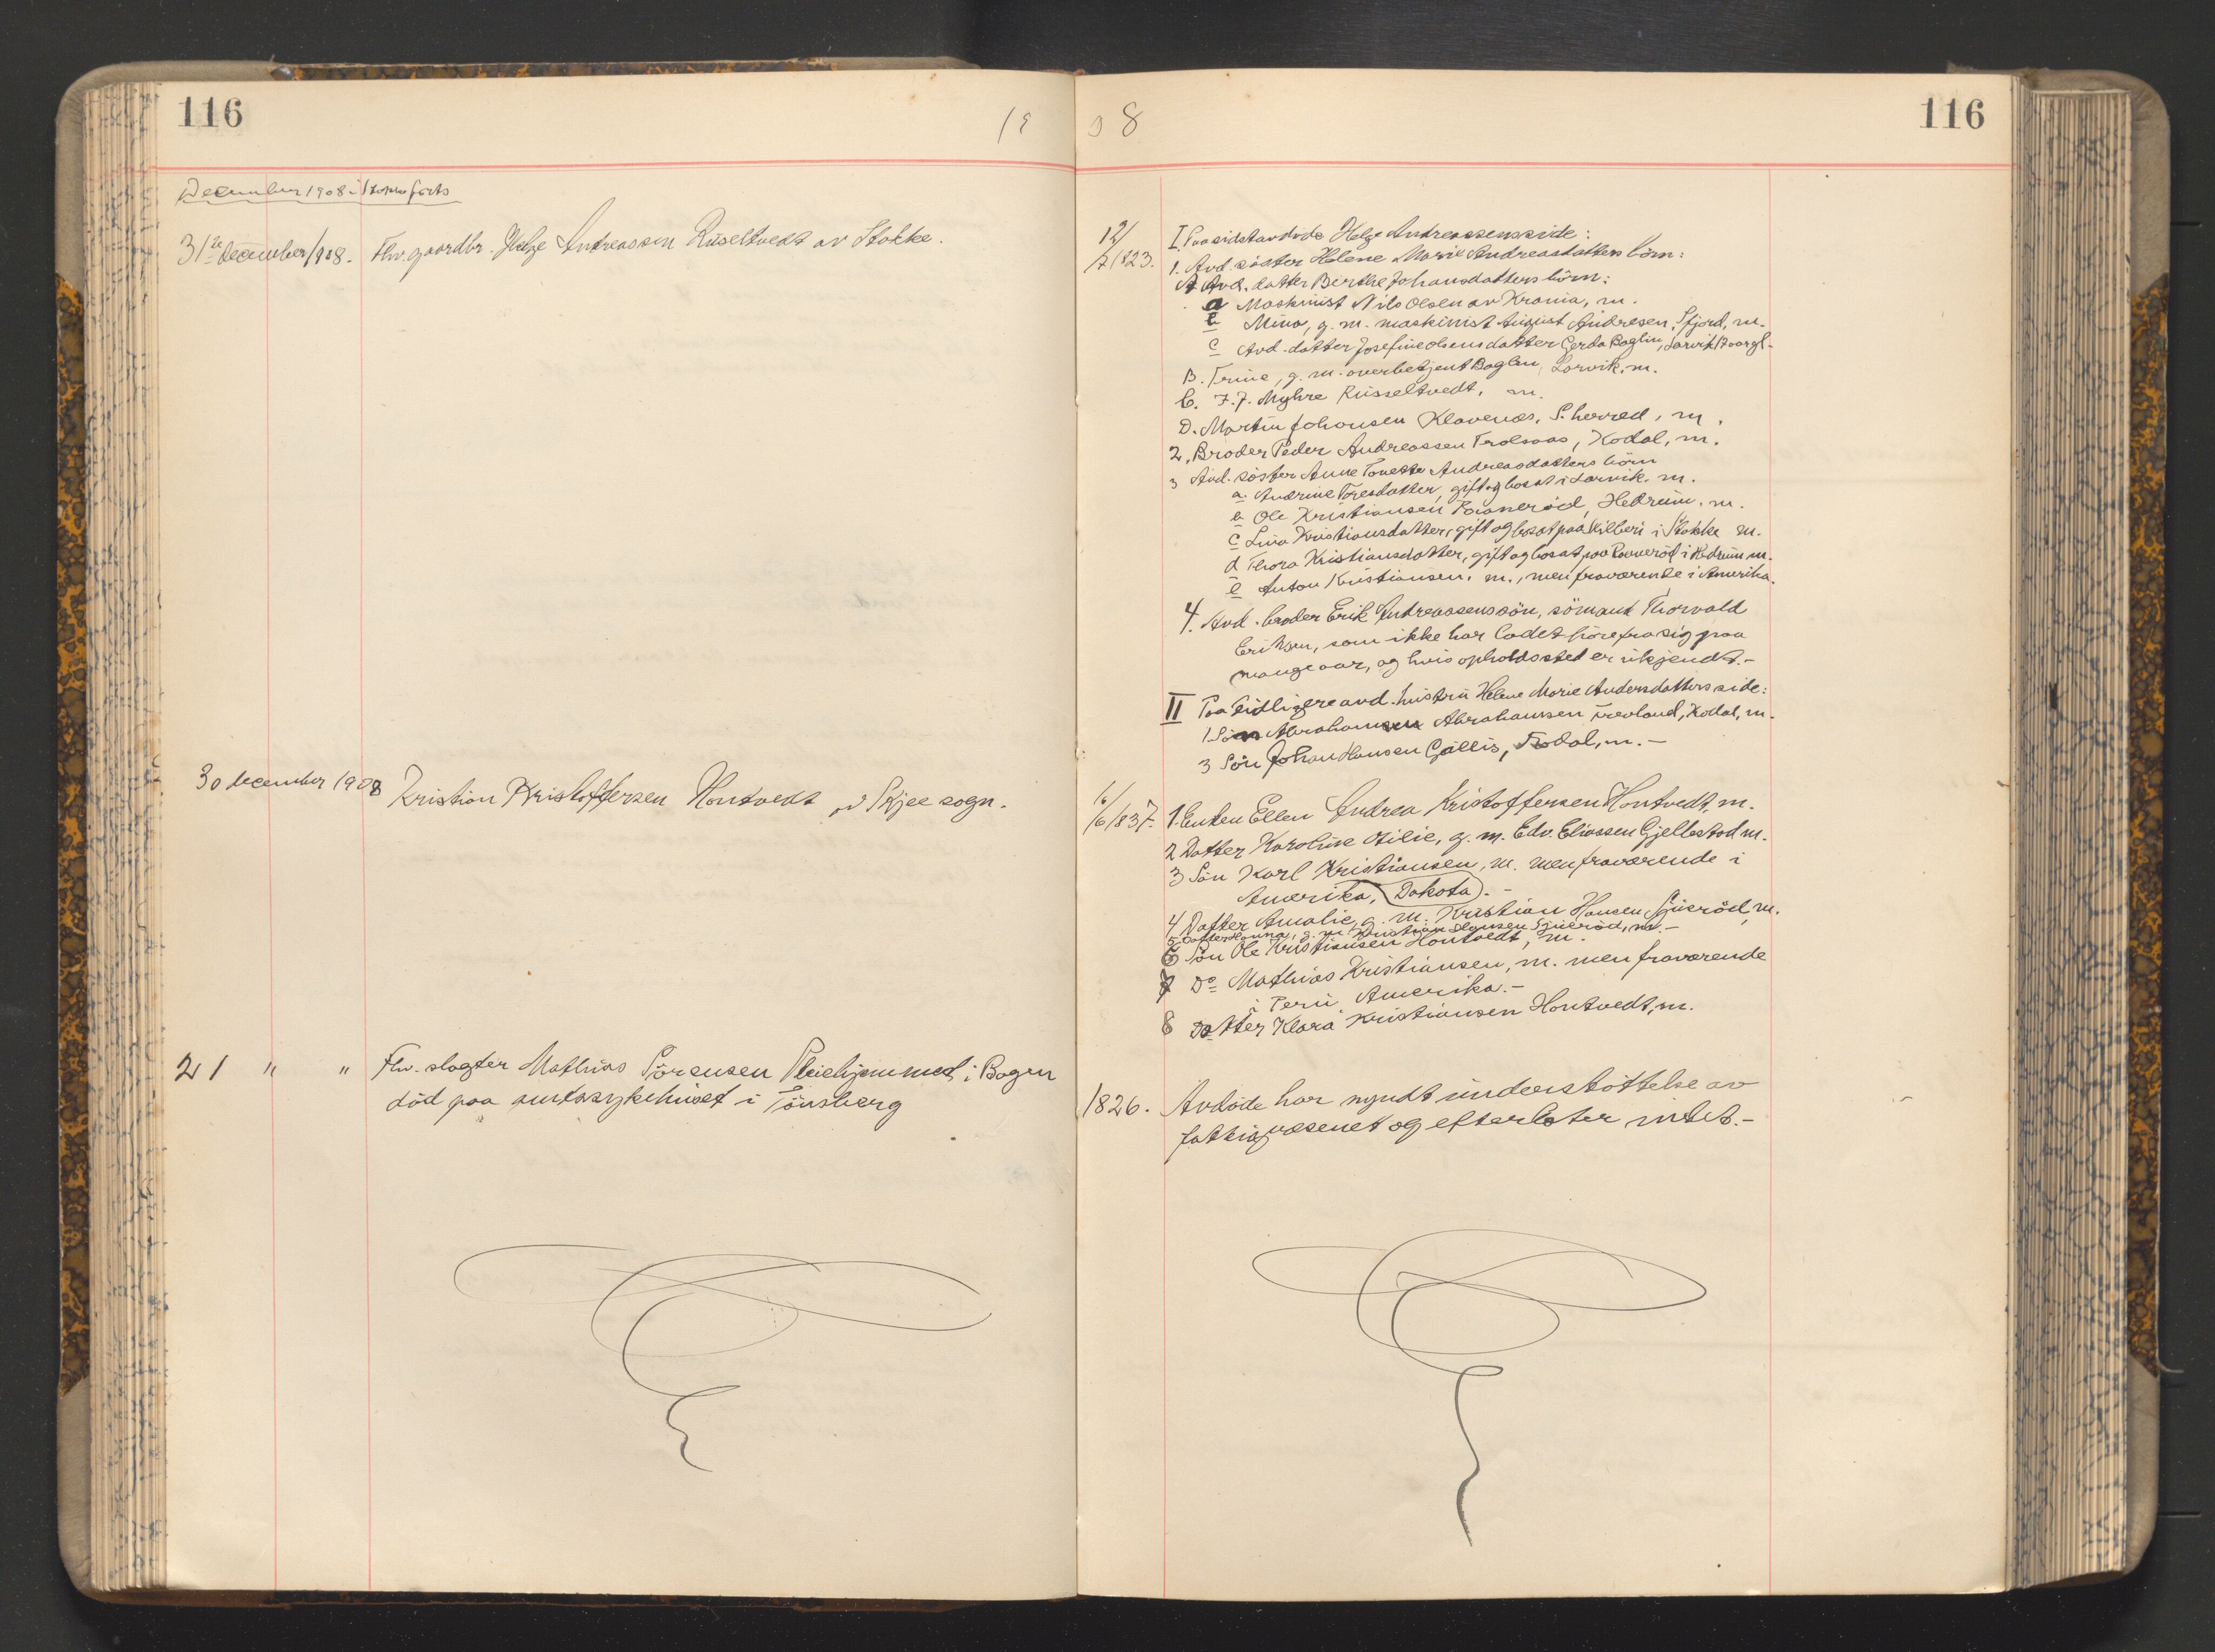 116
19
December 1908 i Stokke forts
31te december 1908. Fhv. gaardbr. Helge Andreassen Ruseltvedt av Stokke.
30 december 1908 Kristian Kristoffersen Hontvedt av Skjee sogn.
21 " " Fhv. slagter Mathias Sörensen Pleiehjemmet i Bogen
död paa amtssykehuset i Tönsberg
08
116
12/7 1823. I. Paa sidstavdöde Helge Andreassens side:
1. Avd. söster Helene Marie Andreasdatters börn:
A Avd. datter Berthe Johansdatters börn:
a Maskinist Nils Olsen av Krania, m.
b Mina, g. m. maskinist August Andresen, Sfjord, m.
c Avd. datter Josefine Olsens datter Gerda Baglin, Larvik
B. Trine, g. m. overbetjent Baglin, Larvik, m.
C. J. J. Myhre Russeltvedt, m.
D. Martin Johansen Klavenæs, S. herred, m.
2, Broder Peder Andreassen Trolsaas, Kodal, m.
3 Avd. söster Anne Tonette Andreasdatters börn
a. Andrine Toresdatter, gift og bosat i Larvik. m.
b Ole Kristiansen, Hedrum. m.
c Lina Kristiansdatter, gift og bosat paa Hilberi i Stokke m.
d Thora Kristiansdatter, gift og bosat paa i Hedrum m.
e Anton Kristiansen, m., men fraværende i Amerika.
4. Avd. broder Erik Andreassens sön, sömand Thorvald
Eriksen, som ikke har ladet höre fra sig paa
mange aar, og hvis opholdssted er ukjendt.-
II Paa tidligere avd. hustru Helene Marie Andersdatters side:
1. Sön Abraham Abrahamsen, Kodal, m.
3 Sön Johan Hansen Gallis, Kodal, m. -
6/6 1837. 1. Enken Ellen Andrea Kristoffersen Hontvedt, m.
2 Datter Karoline Otilie, g. m. Edv. Eliassen Gjellestad m.
3 Sön Karl Kristiansen, m. men fraværende i
Amerika, (Dakota). -
4 Datter Amalie, g. m. Kristian Hansen Sjueröd, m.
5 Datter Hanna, g. m. Kristian Hansen Sjueröd, m. -
6 Sön Ole Kristiansen Hontvedt, m.
7 Do Mathias Kristiansen, m. men fraværende
i Peru Amerika. -
8 Datter Klara Kristiansen Hontvedt, m.
1826. Avdöde har nyndt understöttelse av
fattigvæsenet og efterlater intet. -